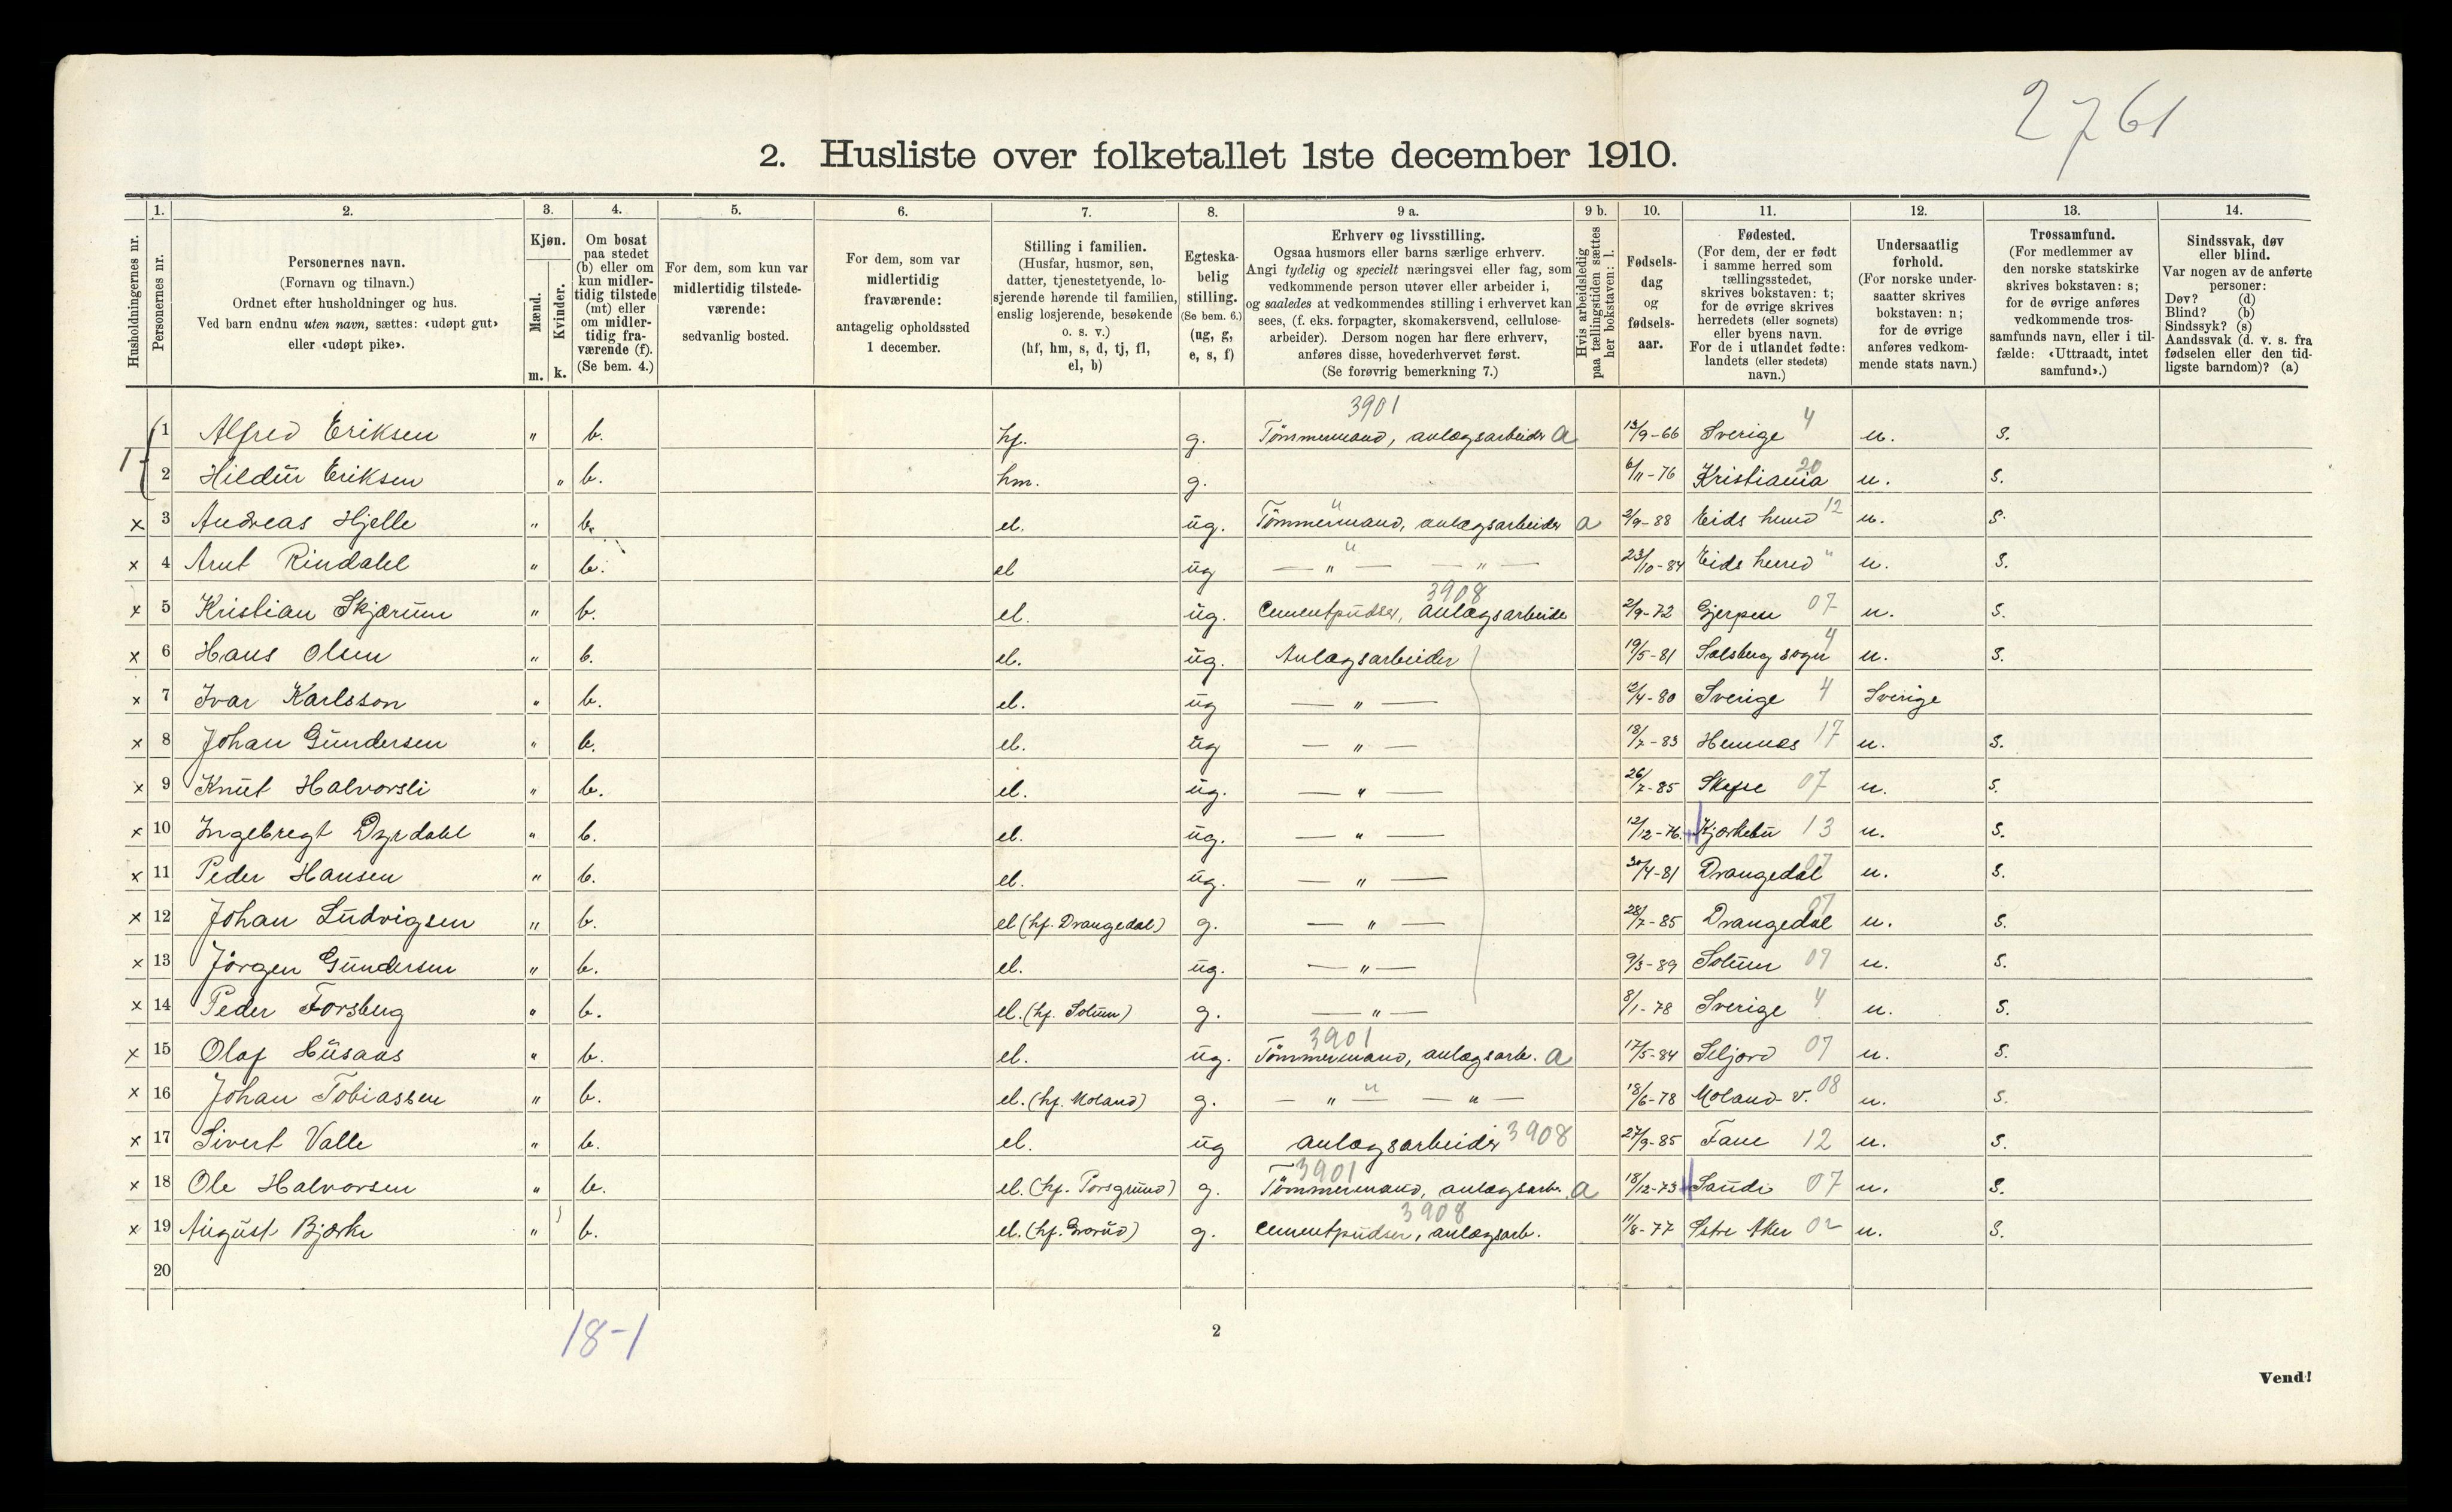 2761
2. Husliste over folketallet 1ste december 1910.
Husholdningernes nr.
1. Personernes nr.
2. Personernes navn.
(Fornavn og tilnavn.)
Ordnet efter husholdninger og hus.
Ved barn endnu uten navn, sættes: «udøpt gut»
eller «udøpt pike».
3. Kjøn.
Mænd. m.
Kvinder. k.
4. Om bosat
paa stedet
(b) eller om
kun midler-
tidig tilstede
(mt) eller
om midler-
tidig fra-
værende (f).
(Se bem. 4.)
5. For dem, som kun var
midlertidig tilstede-
værende:
sedvanlig bosted.
6. For dem, som var
midlertidig
fraværende:
antagelig opholdssted
1 december.
7. Stilling i familien.
(Husfar, husmor, søn,
datter, tjenestetyende, lo-
sjerende hørende til familien,
enslig losjerende, besøkende
o. s. v.)
(hf, hm, s, d, tj, fl,
el, b)
8. Egteska-
belig
stilling.
(Se bem. 6.)
(ug, g,
e, s, f)
9 a. Erhverv og livsstilling.
Ogsaa husmors eller barns særlige erhverv.
Angi tydelig og specielt næringsvei eller fag, som
vedkommende person utøver eller arbeider i,
og saaledes at vedkommendes stilling i erhvervet kan
sees, (f. eks. forpagter, skomakersvend, cellulose-
arbeider). Dersom nogen har flere erhverv,
anføres disse, hovederhvervet først.
(Se forøvrig bemerkning 7.)
9 b. Hvis arbeidsledig
paa tællingstiden sættes
her bokstaven: l.
10. Fødsels-
dag
og
fødsels-
aar.
11. Fødested.
(For dem, der er født
i samme herred som
tællingsstedet,
skrives bokstaven: t;
for de øvrige skrives
herredets (eller sognets)
eller byens navn.
For de i utlandet fødte:
landets (eller stedets)
navn.)
12. Undersaatlig
forhold.
(For norske under-
saatter skrives
bokstaven: n;
for de øvrige
anføres vedkom-
mende stats navn.)
13. Trossamfund.
(For medlemmer av
den norske statskirke
skrives bokstaven: s;
for de øvrige anføres
vedkommende tros-
samfunds navn, eller i til-
fælde: «Uttraadt, intet
samfund».)
14. Sindssvak, døv
eller blind.
Var nogen av de anførte
personer:
Døv? (d)
Blind? (b)
Sindssyk? (s)
Aandssvak (d. v. s. fra
fødselen eller den tid-
ligste barndom)? (a)
3901
1 1 Alfred Eriksen " b. hf. g. Tömmermand, anlægsarbeider a 13/9-66 Sverige 4 n. s.
2 Hildur Eriksen " b. hm. g. 6/11-76 Kristiania 20 n. s.
x 3 Andreas Hjelle " b. el. ug. Tömmermand, anlægsarbeider a 2/9-88 Eids herred 12 n. s.
x 4 Arnt Rindahl " b. el ug — " — — " — 23/10-84 Eids herred " n. s.
3908
x 5 Kristian Skjærum " b. el. ug. Cementpudser, anlægsarbeider 2/9-72 Gjerpen 07 n. s.
x 6 Hans Olsen " b. el. ug. Anlægsarbeider 19/5-81 Solsberg sogn 4 n. s.
x 7 Ivar Karlsson " b. el. ug — " — 12/4-80 Sverige 4 Sverige
x 8 Johan Gundersen " b. el. ug — " — 18/7-83 Hemnes 17 n. s.
x 9 Knut Halvorsli " b. el. ug. — " — 26/7-85 Skafse 07 n. s.
x 10 Ingebregt Dyrdahl " b. el. ug. — " — 12/12-76. Kjørkebu 13 n. s.
x 11 Peder Hansen " b. el. ug. — " — 30/4-81 Drangedal 07 n. s.
x 12 Johan Ludvigsen " b. el (hf. Drangedal) g. — " — 28/7-85 Drangedal 07 n. s.
x 13 Jörgen Gundersen " b. el. ug. — " — 9/3-89 Solum 07 n. s.
x 14 Peder Forsberg " b. el. (hf. Solum) g. — " — 8/1-78 Sverige 4 n. s.
3901
x 15 Olaf Husaas " b. el. ug. Tömmermand, anlægsarb. a 17/5-84 Seljord 07 n. s.
x 16 Johan Tobiassen " b. el. (hf. Moland) g. — " — — " — 18/6-78 Moland v. 08 n. s.
x 17 Sivert Valle " b. el. ug anlægsarbeider 3908 27/9-85 Fane 12 n. s.
3901
x 18 Ole Halvorsen " b. el. (hf. Porsgrund) g. Tömmermand, anlægsarb. a 18/12-73 Saude 07 n. s.
3908
x 19 August Bjærke " b. el. (hf. Grorud) g. Cementpudser, anlægsarb. 11/8-77 Østre Aker 02 n. s.
20
18-1
2
Vend!